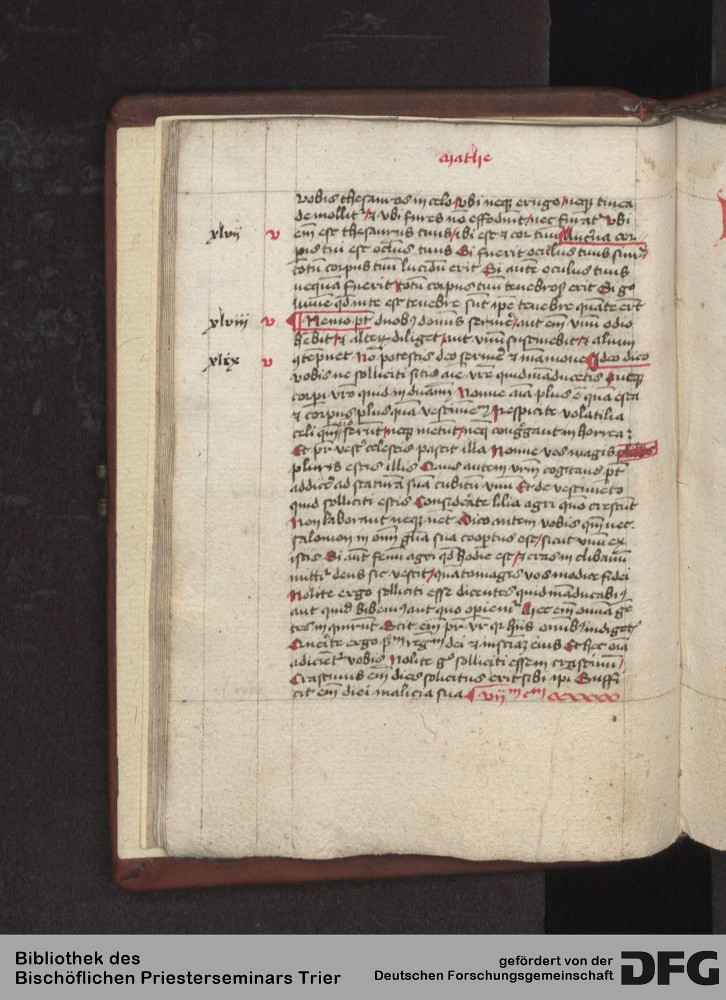 mathe
vobis thesauros in celo vbi neqꝫ erugo neqꝫ tinea
demolitʳ ⁊ vbi fures nō effodiūt nec furātʳ vbi
xlvii v em̄ est thesaurus tuus ibi est ⁊ cor tuū Lucerna cor
pus tui est oculus tuus Si fuerit oculus tuus simp
totū corpus tuū lucidū erit Si autē oculus tuus
nequā fuerit totū corpus tuū tenebrosū erit Si gͦ
lumē qd in te est tenebre sūt ipē tenebre quāte erūt
xlviii v Nemo pt duobꝫ domīs seruire aut em̄ vnū odio
hēbit ⁊ alterꝫ diliget aut vnū sustinebit ⁊ aliū
xlix v cōtēpnet Nō potestis deo seruire ⁊ mamone Ideo dico
vobis ne solliciti sitis aīe vrē quid māducetis neqꝫ
corpi vrō quid induamī Nonne aīa plus ē quā esca
⁊ corpus plus quā vestimētū Respicite volatilia
celi qm̄ nō serūt neqꝫ metūt neqꝫ congregāt in horrea
Et pr̄ vester celestis pascit illa Nonne vos magis
pluris estis illis Quis autem vrm̄ cogitans pt
addicere ad staturā suā cubitū vnū Et de vestimēto
quid solliciti estis Considerate lilia agri quō crescūt
Non laborant neqꝫ nēt Dico autem vobis qm̄ nec
salomon in omī glīa sua coopertus est sicut vnū ex
istis Si aūt fenū agri qd hodie est ⁊ cras in clibanū
mittitʳ deus sic vestit quātomagis vos modice fidei
Nolite ergo solliciti esse dicentes quid māducabimꝰ
aut quid bibemꝰ aut quo operiemʳ Hec em̄ omīa gē
tes inquirūt Scit em̄ pr̄ vr̄ qꝛ hiis omībꝫ indigetis
Querite ergo pͥmū regnū dei ⁊ iusticiā eius Et hec oīa
adicientʳ vobis Nolite gͦ solliciti esse in crastinū
Crastinus em̄ dies solicitus erit sibi ipi Suffi
cit em̄ diei malicia sua viiᵐ cᵐ
Bibliothek des
Bischöflichen Priesterseminars Trier
gefördert von der
Deutschen Forschungsgemeinschaft
DFG